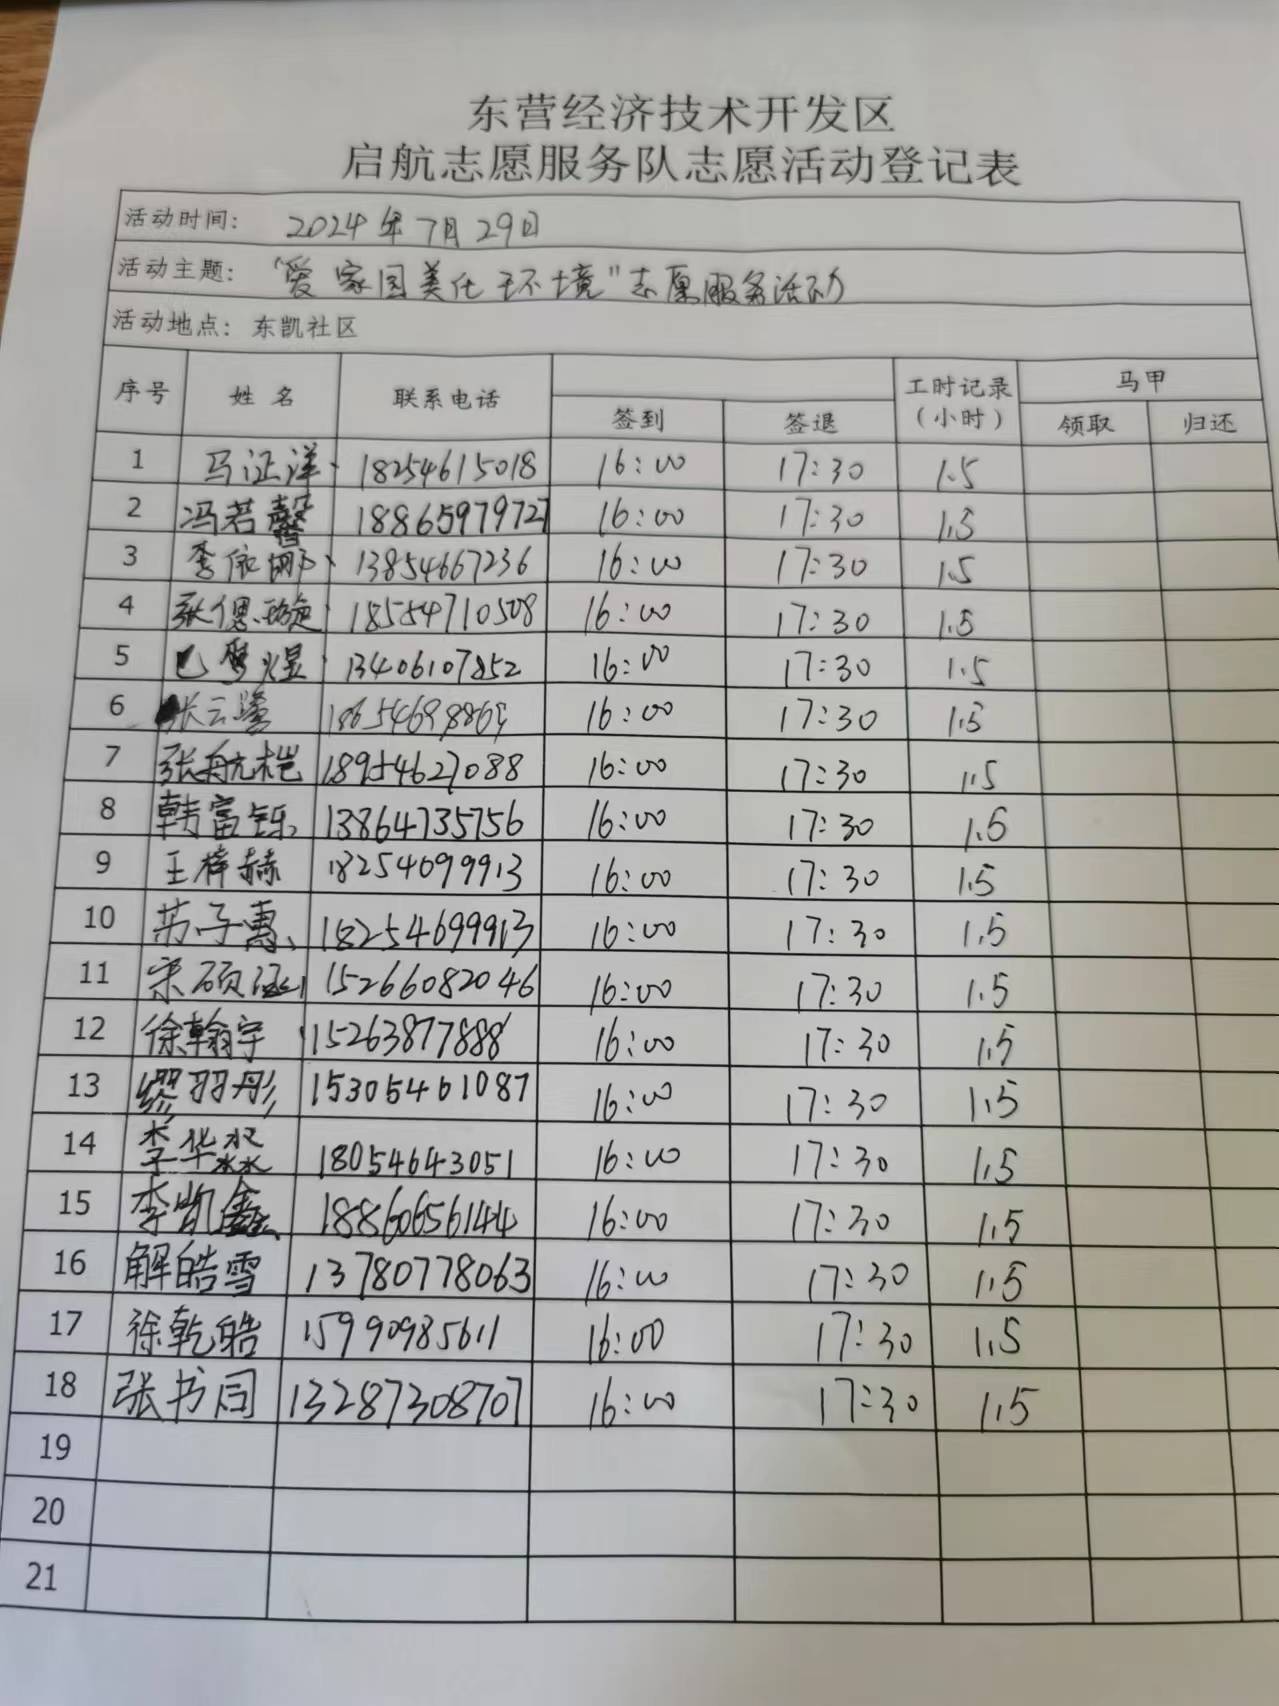 东营经济技术开发区
启航志愿服务队志愿活动登记表
活动时间: 2024年7月29日
活动主题: "爱家园美化环境"志愿服务活动
活动地点: 东凯社区
序号 姓名 联系电话 签到 签退 工时记录(小时) 马甲 领取 归还
1 马证洋 18254615018 16:00 17:30 1.5
2 冯若馨 18865979727 16:00 17:30 1.5
3 李依娜 13854667236 16:00 17:30 1.5
4 张偲璇 18554710508 16:00 17:30 1.5
5 巴梦煜 13406107852 16:00 17:30 1.5
6 张云 16:00 17:30 1.5
7 张航桤 18954627088 16:00 17:30 1.5
8 韩富铄 13864735756 16:00 17:30 1.5
9 王梓赫 18254699913 16:00 17:30 1.5
10 苏子惠 18254699913 16:00 17:30 1.5
11 宋硕涵 15266082046 16:00 17:30 1.5
12 徐翰宇 15263877888 16:00 17:30 1.5
13 缪羽彤 15305461087 16:00 17:30 1.5
14 李华淼 18054643051 16:00 17:30 1.5
15 李凯鑫 18860656144 16:00 17:30 1.5
16 解皓雪 13780778063 16:00 17:30 1.5
17 徐乾皓 15990985611 16:00 17:30 1.5
18 张书同 13287308707 16:00 17:30 1.5
19
20
21